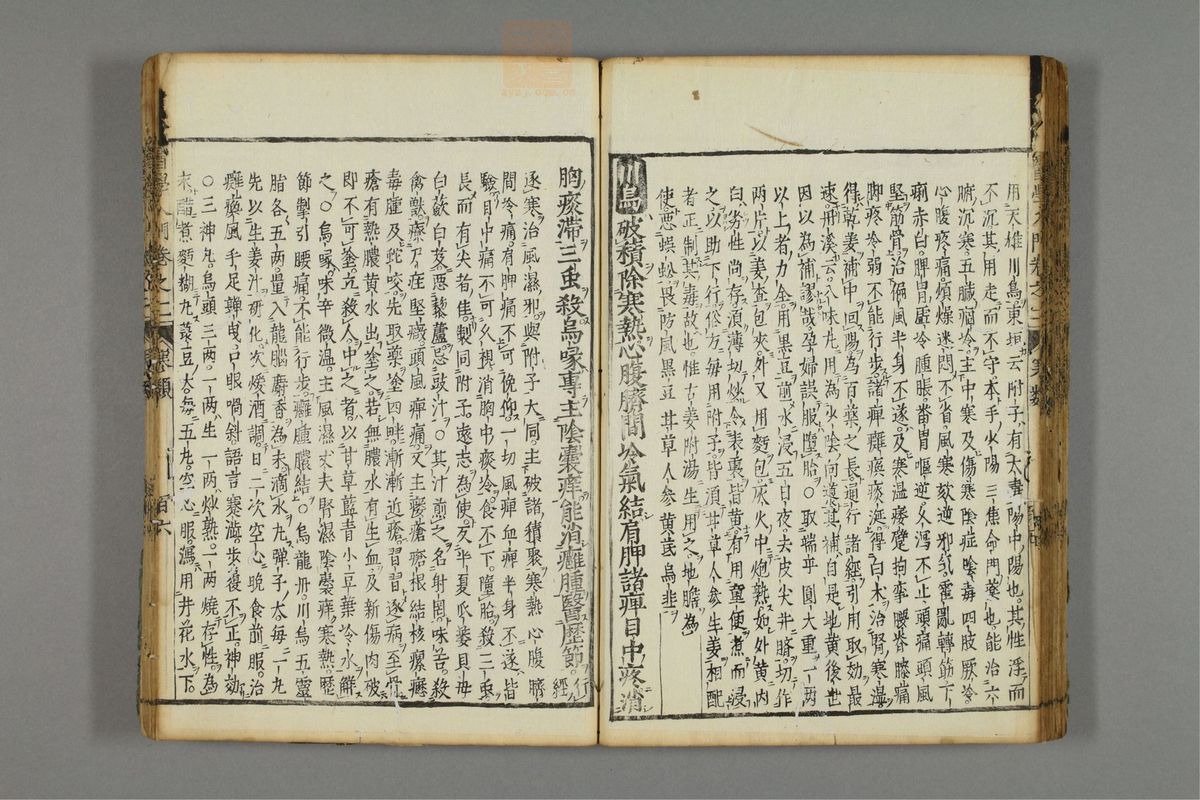 用天雄川烏東垣云附子有大毒陽中陽也其性浮而
不沉其用走而不守本手火陽三焦命門藥也能治六
腑沉寒五臟痼冷主中寒及傷寒陰症陰毒四肢厥冷
心腹疼痛煩燥迷悶不省風寒欬逆邪氣霍亂轉筋下
痢赤白脾胃虛冷腫脹番胃嘔逆久瀉不止頭痛頭風
堅筋骨治偏風半身不遂及寒温痿躄拘攣腰脊膝痛
脚疼冷弱不能行步諸痺癱瘓痰涎得白术治腎寒濕
得乾姜補中回陽為百藥之長通行諸經引用取効最
速丹溪云八味丸用為火陰向導其補自是地黃後世
因以為補謬哉孕婦誤服墮胎○取端平圓大重一兩
以上者力全用黑豆煎水浸五日夜去皮尖并臍切作
兩片以姜查包夾外又用麪包灰火中炮熟如外黃內
白劣性尚存須薄切炒令表裏皆黃有用童便煮而浸
之以助下行俗方每用附子皆須甘草人參生姜相配
者正制其毒故也惟古姜附湯生用之地膽為
使惡蜈蚣畏防風黑豆甘草人參黃芪烏韭
川烏破積除寒熱心腹臍間冷氣結肩胛諸痺目中疼消
胸痰滯三虫殺烏喙專主陰囊癢能消癰腫醫歷節行經
逐寒治風濕邪與附子大同主破諸積聚寒熱心腹臍
間冷痛有胛痛不可俛仰一切風痺血痺半身不遂皆
驗目中痛不可久視消胸中痰冷食不下墮胎殺三虫
長而有尖者佳製同附子遠志為使反半夏瓜蔞貝母
白蘞白芨惡藜蘆忌豉汁○其汁煎之名射罔味苦殺
禽獸療尸疰堅癥頭風痺痛又主瘻瘡瘡根結核瘰癧
毒腫及蛇咬先取藥塗四畔漸漸近瘡習習逐病至骨
瘡有熱膿黃水出塗之若無膿水有生血及新傷肉破
即不可塗立殺人中之者以甘草藍青小豆葉冷水解
之○烏喙味辛微温主風濕丈夫腎濕陰囊癢寒熱歷
節掣引腰痛不能行步癰腫膿結○烏龍丹川烏五靈
脂各五兩量入龍腦麝香為末滴水丸彈子大每一丸
先以生姜汁研化次煖酒調日二次空心晚食前服治
癱瘓風手足嚲曳口眼喎斜語言蹇澁步履不正神効
○三神丸烏頭三兩一兩生一兩炒熟一兩燒存性為
末醋煮麪糊丸菉豆大每五丸空心服瀉用井花水下